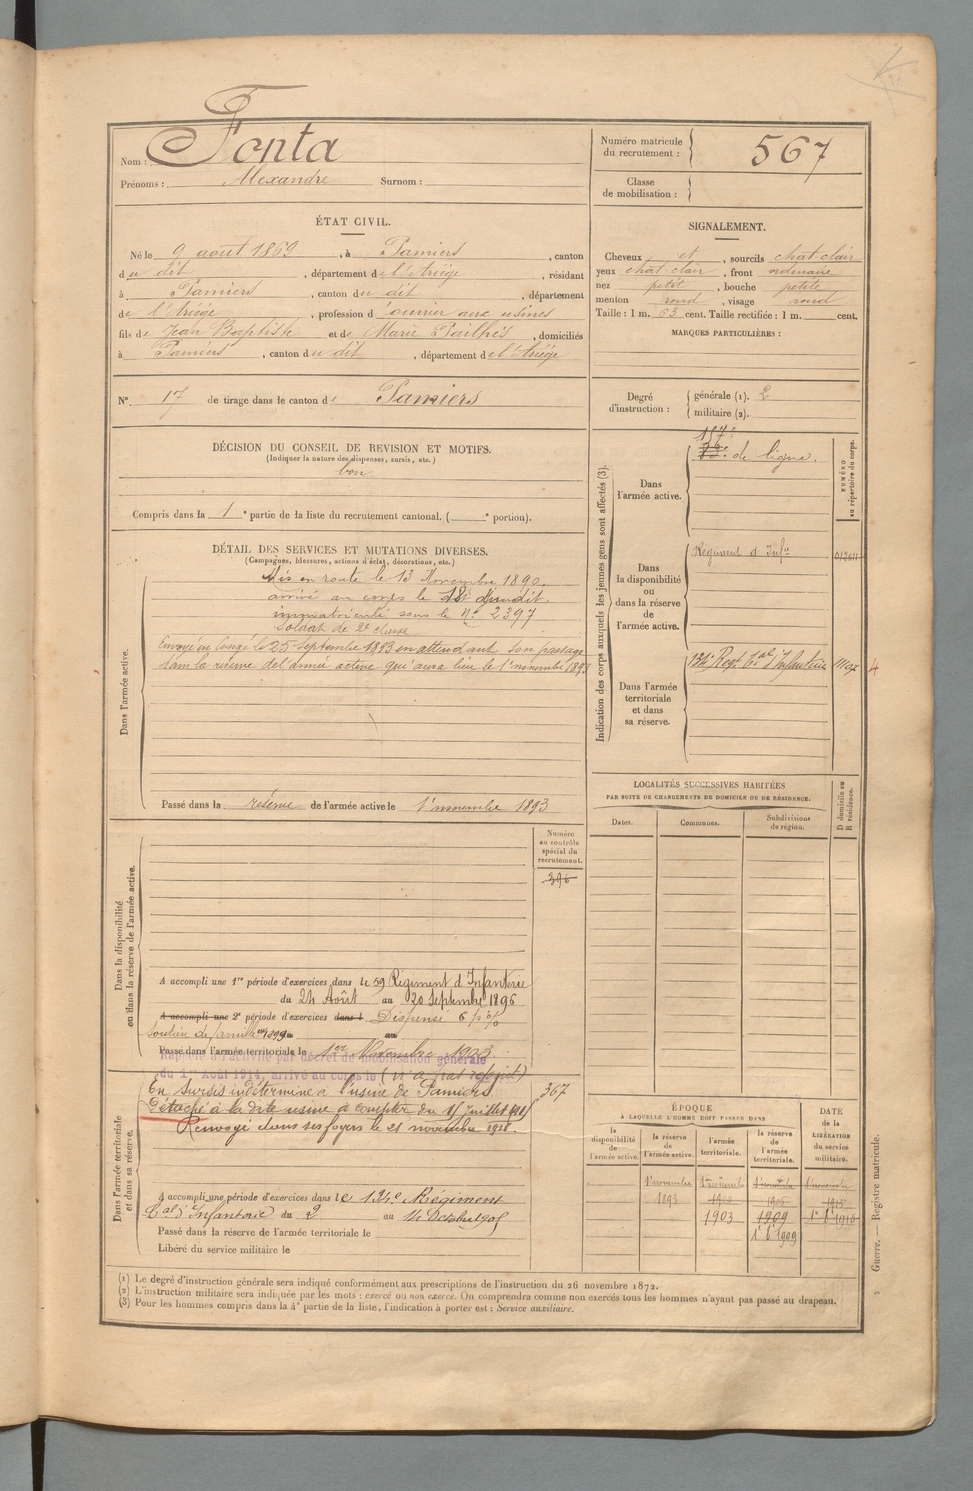 Nom : Fonta
Prénoms : Alexandre Surnom :
Numéro matricule du recrutement : 567
Classe de mobilisation :
ÉTAT CIVIL.
Né le 9 août 1869, à Pamiers, canton
du dit, département de l'Ariége, résidant
à Pamiers, canton du dit, département
de l'Ariége, profession d'ouvrier aux usines
fils de Jean Baptiste et de Marie Pailhès, domiciliés
à Pamiers, canton du dit, département de l'Ariége
N° 17 de tirage dans le canton de Pamiers
SIGNALEMENT.
Cheveux et, sourcils chat-clair
yeux chat-clair, front ordinaire
nez petit, bouche petite
menton rond, visage rond
Taille : 1 m. 63 cent. Taille rectifiée : 1 m. cent.
MARQUES PARTICULIÈRES :
Degré d'instruction : générale (1). 2
militaire (2).
DÉCISION DU CONSEIL DE REVISION ET MOTIFS.
(Indiquer la nature des dispenses, sursis, etc.)
bon
Compris dans la 1e partie de la liste du recrutement cantonal. ( e portion).
DÉTAIL DES SERVICES ET MUTATIONS DIVERSES.
(Campagnes, blessures, actions d'éclat, décorations, etc.)
Dans l'armée active.
Mis en route le 13 Novembre 1890.
arrivé au corps le dudit.
immatriculé sous le N° 2397
Soldat de 2e classe
Envoyé en congé le 25 septembre 1893 en attendant son passage
dans la réserve de l'armée active qui aura lieu le 1er novembre 1893
Passé dans la réserve de l'armée active le 1er novembre 1893
Indication des corps auxquels les jeunes gens sont affectés (3).
NUMÉRO au répertoire du corps.
Dans l'armée active.
de ligne.
Dans la disponibilité ou dans la réserve de l'armée active.
Régiment d'Infie
Dans l'armée territoriale et dans sa réserve.
134e Regt tal d'Infanterie
LOCALITÉS SUCCESSIVES HABITÉES
PAR SUITE DE CHANGEMENTS DE DOMICILE OU DE RÉSIDENCE.
D domicile ou R résidence.
Dates. Communes. Subdivisions de région.
Dans la disponibilité ou dans la réserve de l'armée active.
Numéro au contrôle spécial du recrutement.
396
A accompli une 1re période d'exercices dans le 59 Régiment d'Infanterie
du 24 Août au 20 Septembre 1896
A accompli une 2e période d'exercices dans l Dispensé 6 p %
Soutien de famille en 1899 au
Passé dans l'armée territoriale le 1er Novembre 1903
Rappelé à l'activité par décret de mobilisation générale
du 1er Août 1914, arrivé au corps le (n'a pas rejoint)
Dans l'armée territoriale et dans sa réserve.
En sursis indéterminé à l'usine de Pamiers. 367
Détaché à la dite usine à compter du 1er Juillet
Renvoyé dans ses foyers le 21 novembre 1918.
A accompli une période d'exercices dans le 134e Régiment
tal d'Infanterie du 2 au 14 Octobre 1905
Passé dans la réserve de l'armée territoriale le
Libéré du service militaire le
ÉPOQUE
À LAQUELLE L'HOMME DOIT PASSER DANS
DATE DE LA LIBÉRATION du service militaire.
la disponibilité de l'armée active. la réserve de l'armée active. l'armée territoriale. la réserve de l'armée territoriale.
1er novembre 1er novembre 1er novembre 1er novembre
1893 1900 1906 1915
1903 1909
1er 8bre 1909
(1) Le degré d'instruction générale sera indiqué conformément aux prescriptions de l'instruction du 26 novembre 1872.
(2) L'instruction militaire sera indiquée par les mots : exercé ou non exercé. On comprendra comme non exercés tous les hommes n'ayant pas passé au drapeau.
(3) Pour les hommes compris dans la 4e partie de la liste, l'indication à porter est : Service auxiliaire.
Guerre. — Registre matricule.